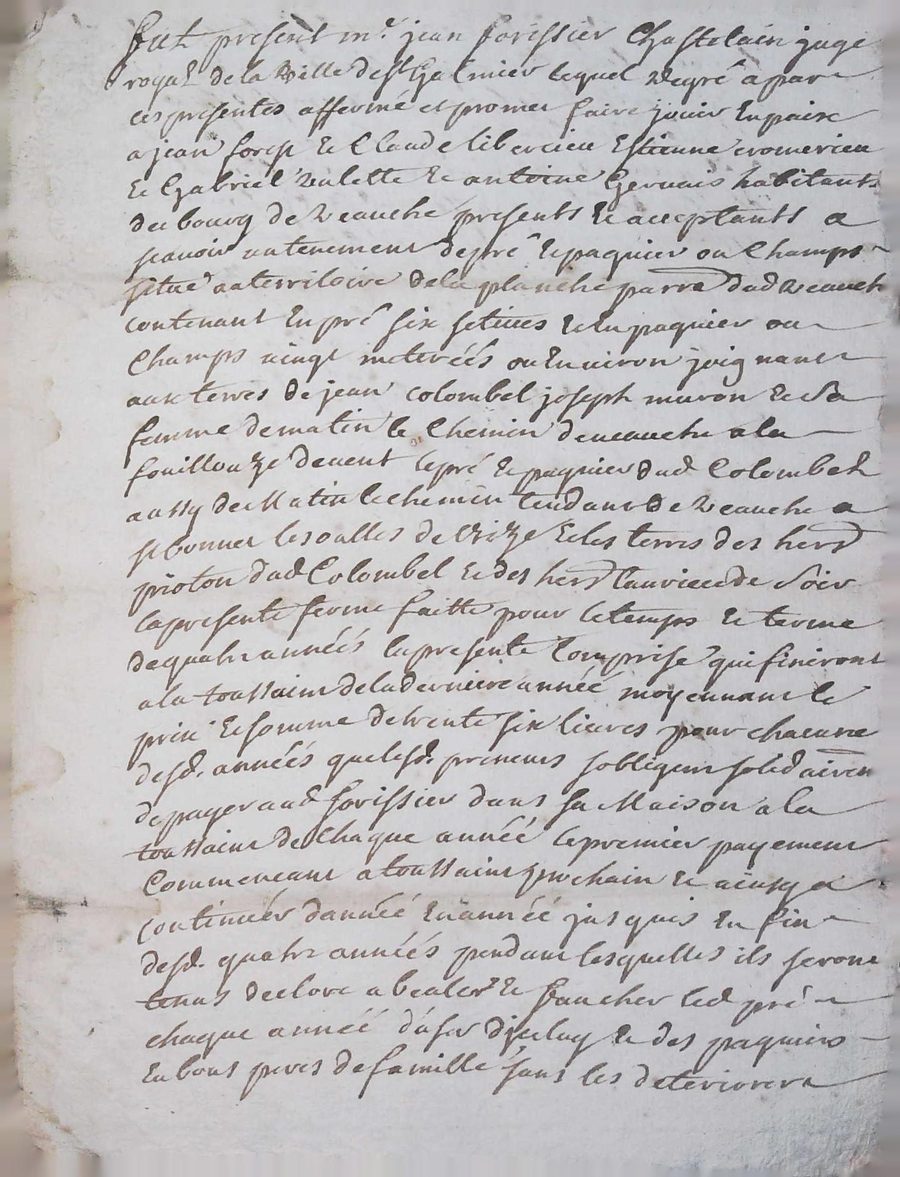 fut present mr jean forissier Chastelain juge
royal de la ville de st Galmier lequel degré a par
ces presentes affermé et promet faire jouir En paix
a jean forest Et Claude libercieu Estienne
Et Gabriel Et antoine Gervais habitants
du bourg de veauche presents Et acceptants a
scavoir un tenement de pré Et paquier ou Champs
situé au territoire de la planche parre dud veauche
contenant En pré six setines Et En paquier ou
Champs vingt meterées ou Environ joignant
aux terres de jean Colombel joseph muron Et sa
femme de matin le Chemin de veauche a la
fouillouze devent le pré Et paquier dud Colombel
aussy de Matin le chemin tendant de veauche a
st bonnet les oulles de bize Et les terres des hers
prioton dud Colombel Et des hers de soir
la presente ferme faitte pour le temps Et terme
de quatre années la presente Comprise qui finiront
a la toussaint de la derniere année moyennant le
prix Et somme de trente six livres pour chacune
desd. années que lesd. preneurs sobligent solidairem
de payer aud forissier dans sa Maison a la
toussaint de Chaque année le premier payement
Commencant a toussaint prochain Et ainsy a
continuer dannée En année jusquis En fin
desd. quatre années pendant lesquelles ils seront
tenus de clore abealer Et faucher led pré
chaque année duser diceluy Et des paquiers
En bons peres de famille sans les deteriorer